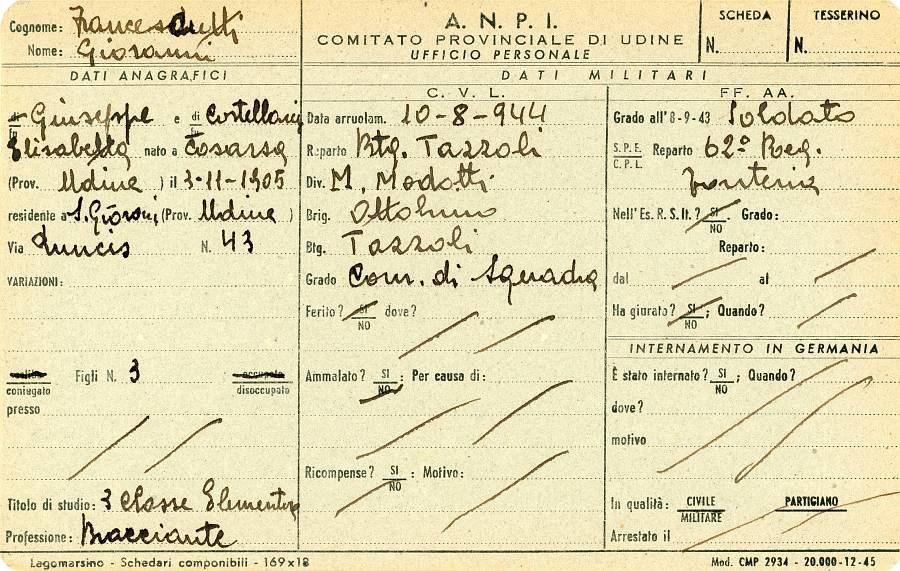 Cognome: Franceschutti
Nome: Giovanni
A. N. P. I.
COMITATO PROVINCIALE DI UDINE
UFFICIO PERSONALE
SCHEDA
N.
TESSERINO
N.
DATI ANAGRAFICI
DATI MILITARI
di Giuseppe e di Costellarin
Elisabetta nato a Cosarsa
(Prov. Udine) il 3-11-1905
residente a S. Giovanni (Prov. Udine)
Via N. 43
VARIAZIONI:
celibe Figli N. 3 occupato
coniugato disoccupato
presso
Titolo di studio: 3 classe Elementare
Professione: Bracciante
C. V. L.
Data arruolam. 10-8-944
Reparto Btg. Tazzoli
Div. M. Modotti
Brig. Ottobrino
Btg. Tazzoli
Grado Com. di Squadra
Ferito? SI NO dove?
Ammalato? SI NO; Per causa di:
Ricompense? SI NO; Motivo:
FF. AA.
Grado all'8-9-43 Soldato
S.P.E. C.P.L. Reparto 62° Reg.
fanteria
Nell'Es. R. S. It.? SI NO. Grado:
Reparto:
dal al
Ha giurato? SI NO; Quando?
INTERNAMENTO IN GERMANIA
È stato internato? SI NO; Quando?
dove?
motivo
In qualità: CIVILE MILITARE PARTIGIANO
Arrestato il
Lagomarsino - Schedari componibili - 169x18
Mod. CMP 2934 - 20.000-12-45